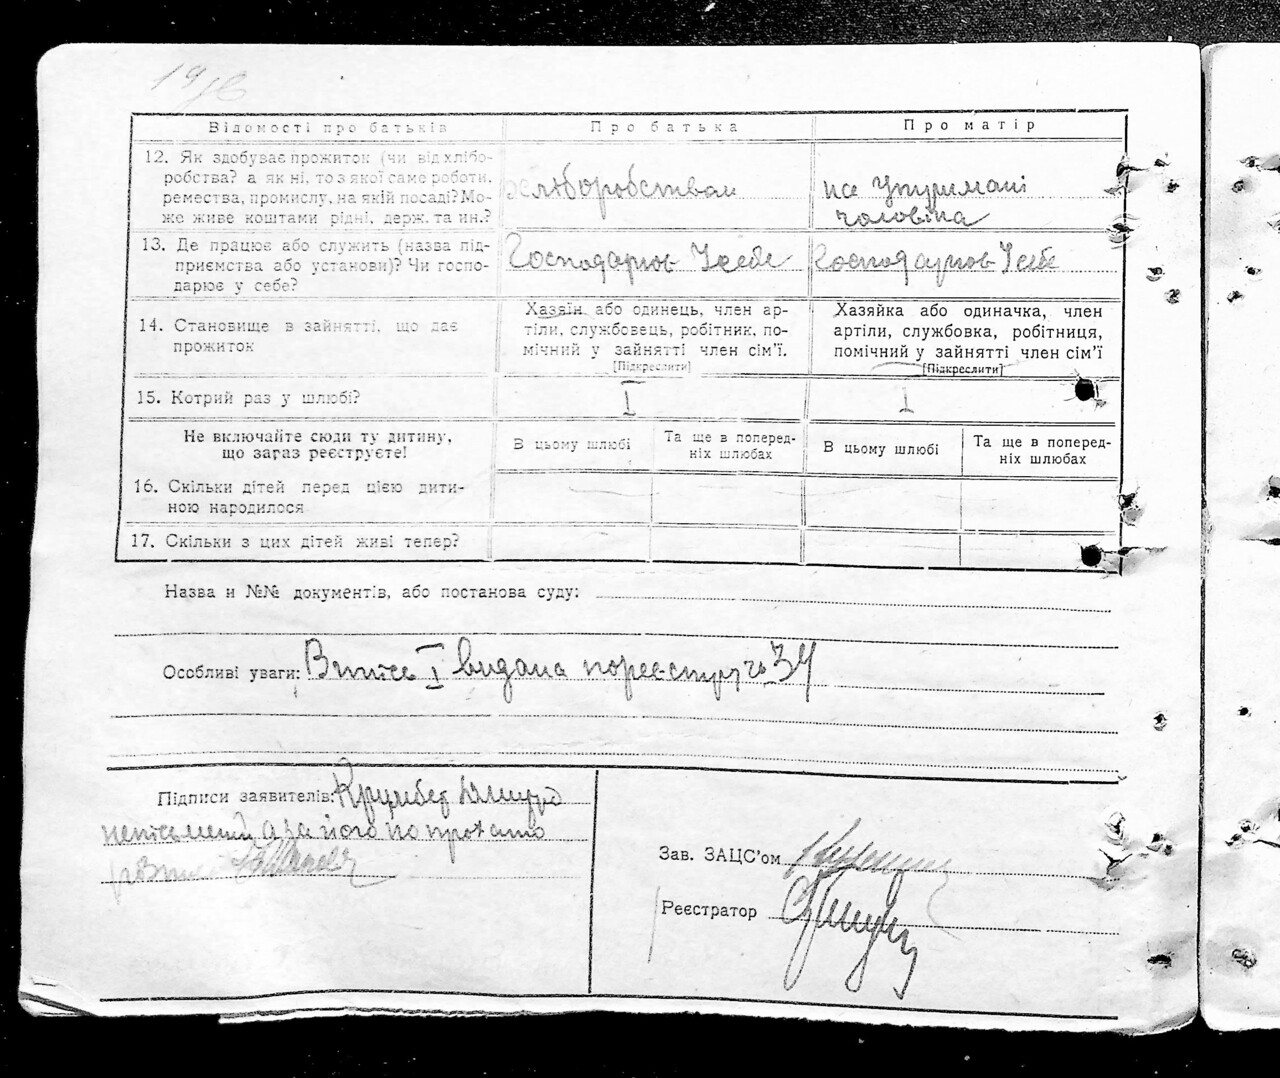 Відомості про батьків Про батька Про матір
12. Як здобуває прожиток (чи від хлібо-
робства? а як ні, то з якої саме роботи,
ремества, промислу, на якій посаді? Мо-
же живе коштами рідні, держ. та ин.?
хліборобством
на утримані
чоловіка
13. Де працює або служить (назва під-
приємства або установи)? Чи госпо-
дарює у себе?
Господарює У себе Господарює У себе
14. Становище в зайнятті, що дає
прожиток
Хазяїн або одинець, член ар-
тіли, службовець, робітник, по-
мічний у зайнятті член сім'ї.
[Підкреслити]
Хазяйка або одиначка, член
артіли, службовка, робітниця,
помічний у зайнятті член сім'ї
[Підкреслити]
15. Котрий раз у шлюбі? I I
Не включайте сюди ту дитину,
що зараз реєструєте!
В цьому шлюбі Та ще в поперед-
ніх шлюбах В цьому шлюбі Та ще в поперед-
ніх шлюбах
16. Скільки дітей перед цією дити-
ною народилося
17. Скільки з цих дітей живі тепер?
Назва и №№ документів, або постанова суду:
Особливі уваги: Випись I видана по реєстру № 34
Підписи заявителів:
а за його по
Зав. ЗАЦС'ом
Реєстратор